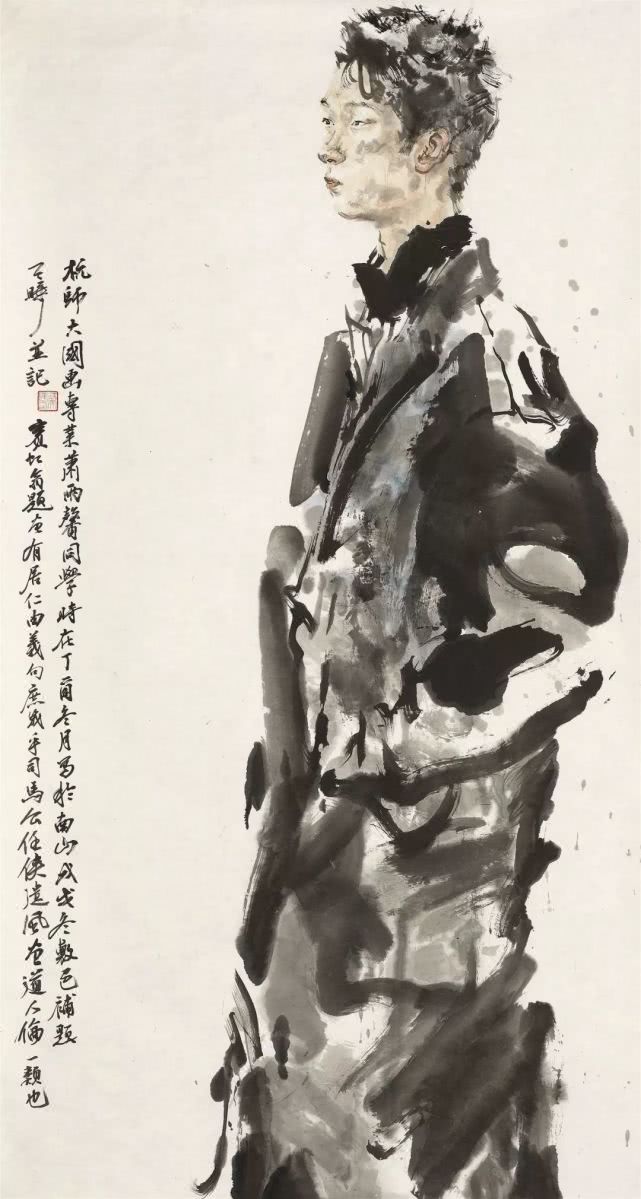 杭師大國画專業蕭雨馨同學時在丁酉冬月寫於南山戊戌冬敷色補題
並記
賓虹翁題画有居仁由義句庶幾乎司馬公任俠遺風畫道人倫一類也